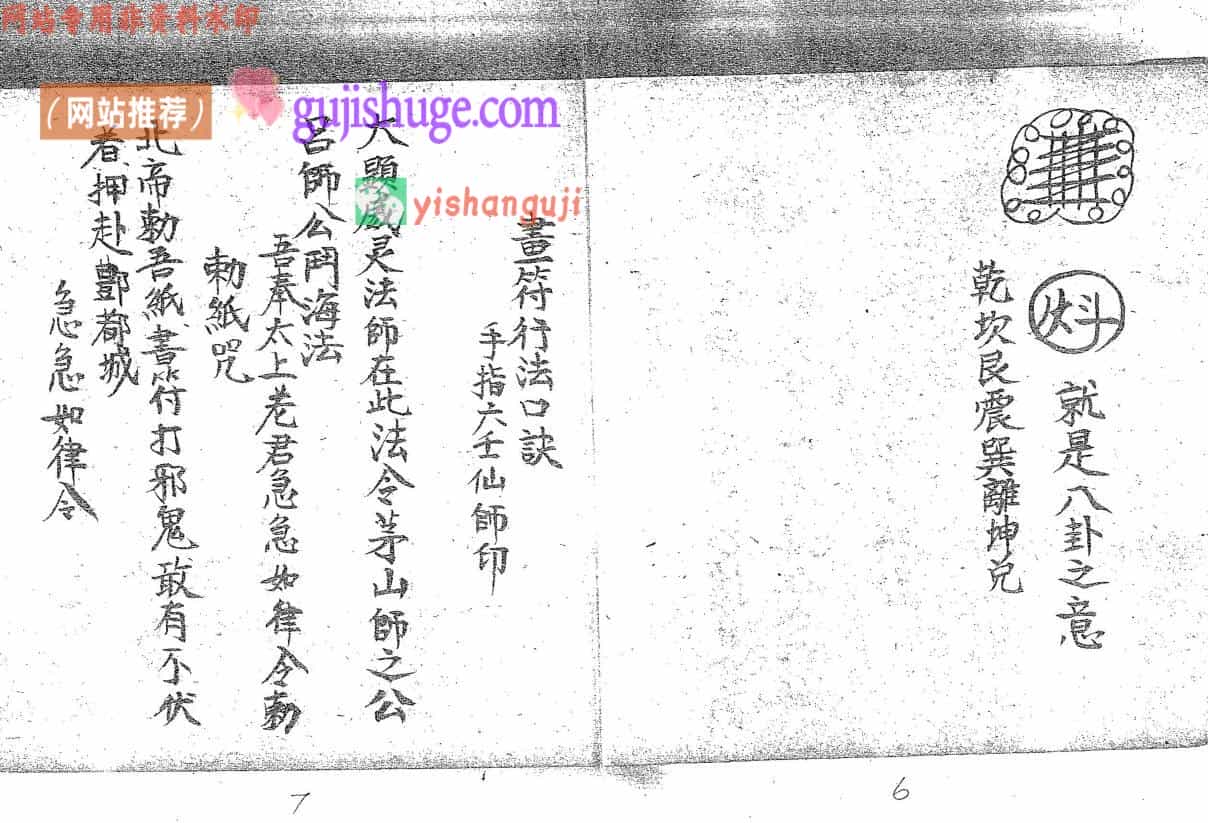 网站专用非资料水印
（网站推荐）
gujishuge.com
yishanguji
就是八卦之意
乾坎艮震巽離坤兑
畫符行法口訣
手指六壬仙師印
大顯威灵法師在此法令茅山師之公
呂師公鬥海法
吾奉太上老君急急如律令勅
勅紙咒
北帝勅吾紙書符打邪鬼敢有不伏
者押赴酆都城
急急如律令
6
7